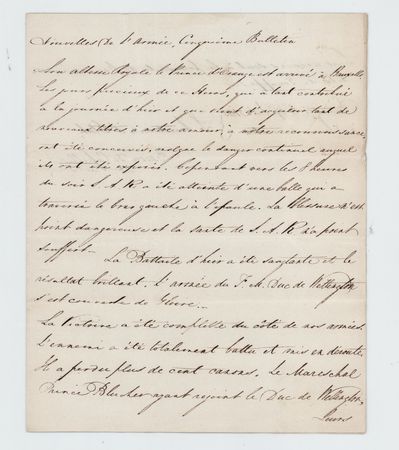 Nouvelles de l'armée, Cinquième Bulletin
Son altesse Royale le Prince d'Orange est arrivé à Bruxelles
Les jours precieux de ce Heros, qui a tant contribué
a la journée d'hier et qui vient d'acquérir tant de
nouveaux titres à notre amour, a notre reconnaissance,
ont été conservés, malgré le danger continuel auquel
ils ont été exposés. Cependant vers les 8 heures
du soir S.A.R a été atteinte d'une balle qui a
traversé le bras gauche à l'épaule. La Blessure n'est
point dangereuse et la santé de S.A.R n'a point
souffert.
La Bataille d'hier a été sanglante et le
résultat brillant. L'armée du F. M. Duc de Wellington
s'est couverte de Gloire.
La Victoire a été complette du côté de nos armées.
L'ennemi a été totalement battu et mis en déroute.
Il a perdu plus de cent canons. Le Mareschal
Prince Blucher ayant rejoint le Duc de Wellington
leurs